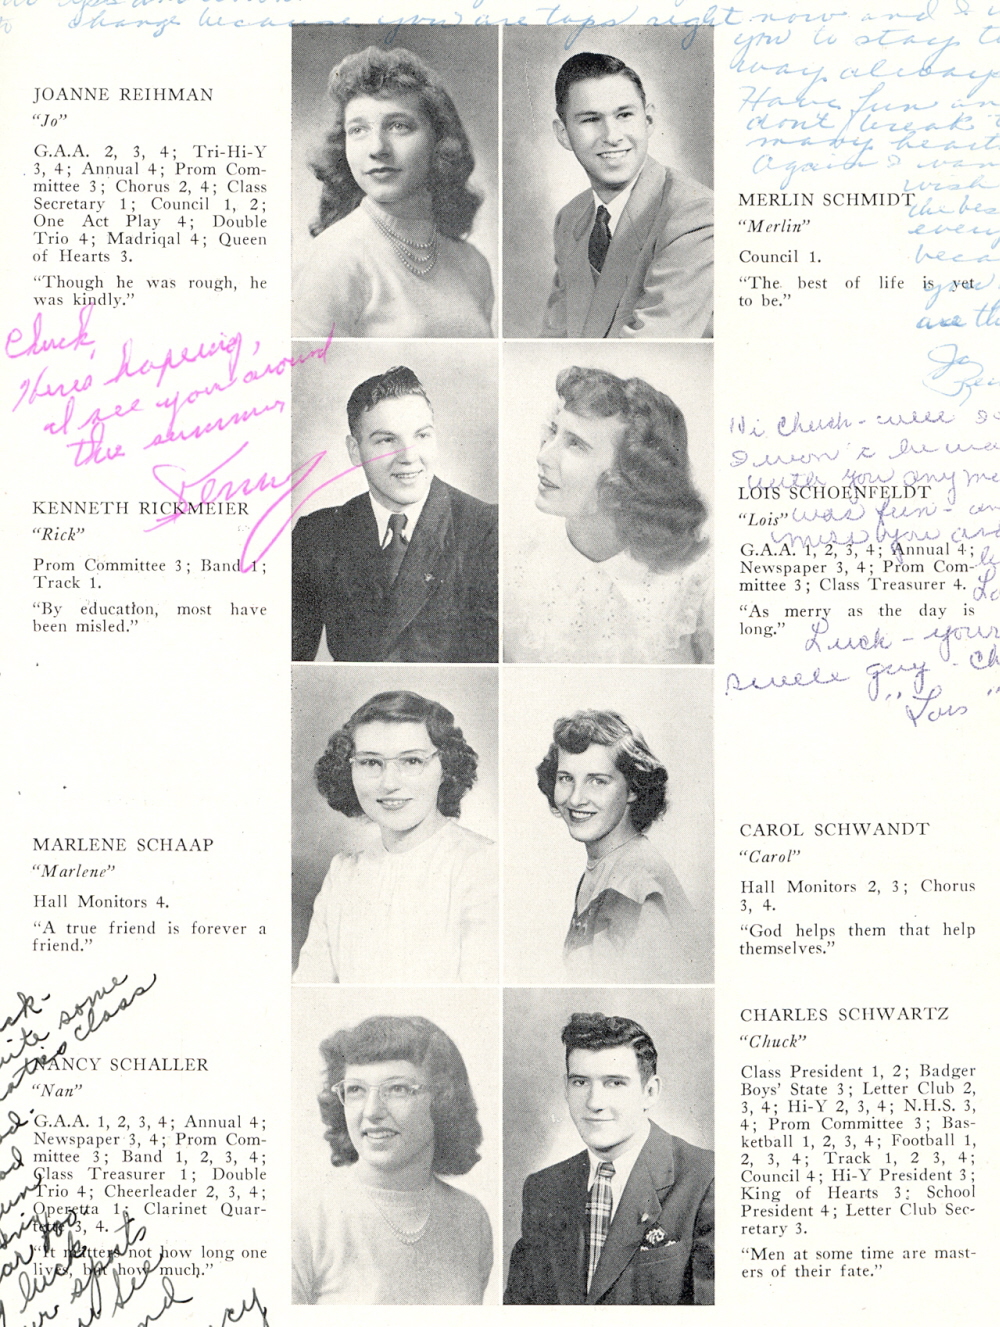 change because you are tops right now and I
you to stay
way always
Have fun
don't break
many hearts
Again I
wish
the bes
every
beca
you
are th
Jo
JOANNE REIHMAN
"Jo"
G.A.A. 2, 3, 4; Tri-Hi-Y
3, 4; Annual 4; Prom Com-
mittee 3; Chorus 2, 4; Class
Secretary 1; Council 1, 2;
One Act Play 4; Double
Trio 4; Madriqal 4; Queen
of Hearts 3.
"Though he was rough, he
was kindly."
MERLIN SCHMIDT
"Merlin"
Council 1.
"The best of life is yet
to be."
Chuck,
Heres hopeing,
I see you around
the summer
KENNETH RICKMEIER
"Rick"
Prom Committee 3; Band 1;
Track 1.
"By education, most have
been misled."
Hi Chuck - well
I won't be
with you any
was fun -
miss you
LOIS SCHOENFELDT
"Lois"
G.A.A. 1, 2, 3, 4; Annual 4;
Newspaper 3, 4; Prom Com-
mittee 3; Class Treasurer 4.
"As merry as the day is
long."
Luck - your
swell guy - Ch
"Lois"
MARLENE SCHAAP
"Marlene"
Hall Monitors 4.
"A true friend is forever a
friend."
CAROL SCHWANDT
"Carol"
Hall Monitors 2, 3; Chorus
3, 4.
"God helps them that help
themselves."
some
class
NANCY SCHALLER
"Nan"
G.A.A. 1, 2, 3, 4; Annual 4;
Newspaper 3, 4; Prom Com-
mittee 3; Band 1, 2, 3, 4;
Class Treasurer 1; Double
Trio 4; Cheerleader 2, 3, 4;
Operetta 1; Clarinet Quar-
tette 3, 4.
"It matters not how long one
lives, but how much."
luck
sports
see
CHARLES SCHWARTZ
"Chuck"
Class President 1, 2; Badger
Boys' State 3; Letter Club 2,
3, 4; Hi-Y 2, 3, 4; N.H.S. 3,
4; Prom Committee 3; Bas-
ketball 1, 2, 3, 4; Football 1,
2, 3, 4; Track 1, 2 3, 4;
Council 4; Hi-Y President 3;
King of Hearts 3; School
President 4; Letter Club Sec-
retary 3.
"Men at some time are mast-
ers of their fate."